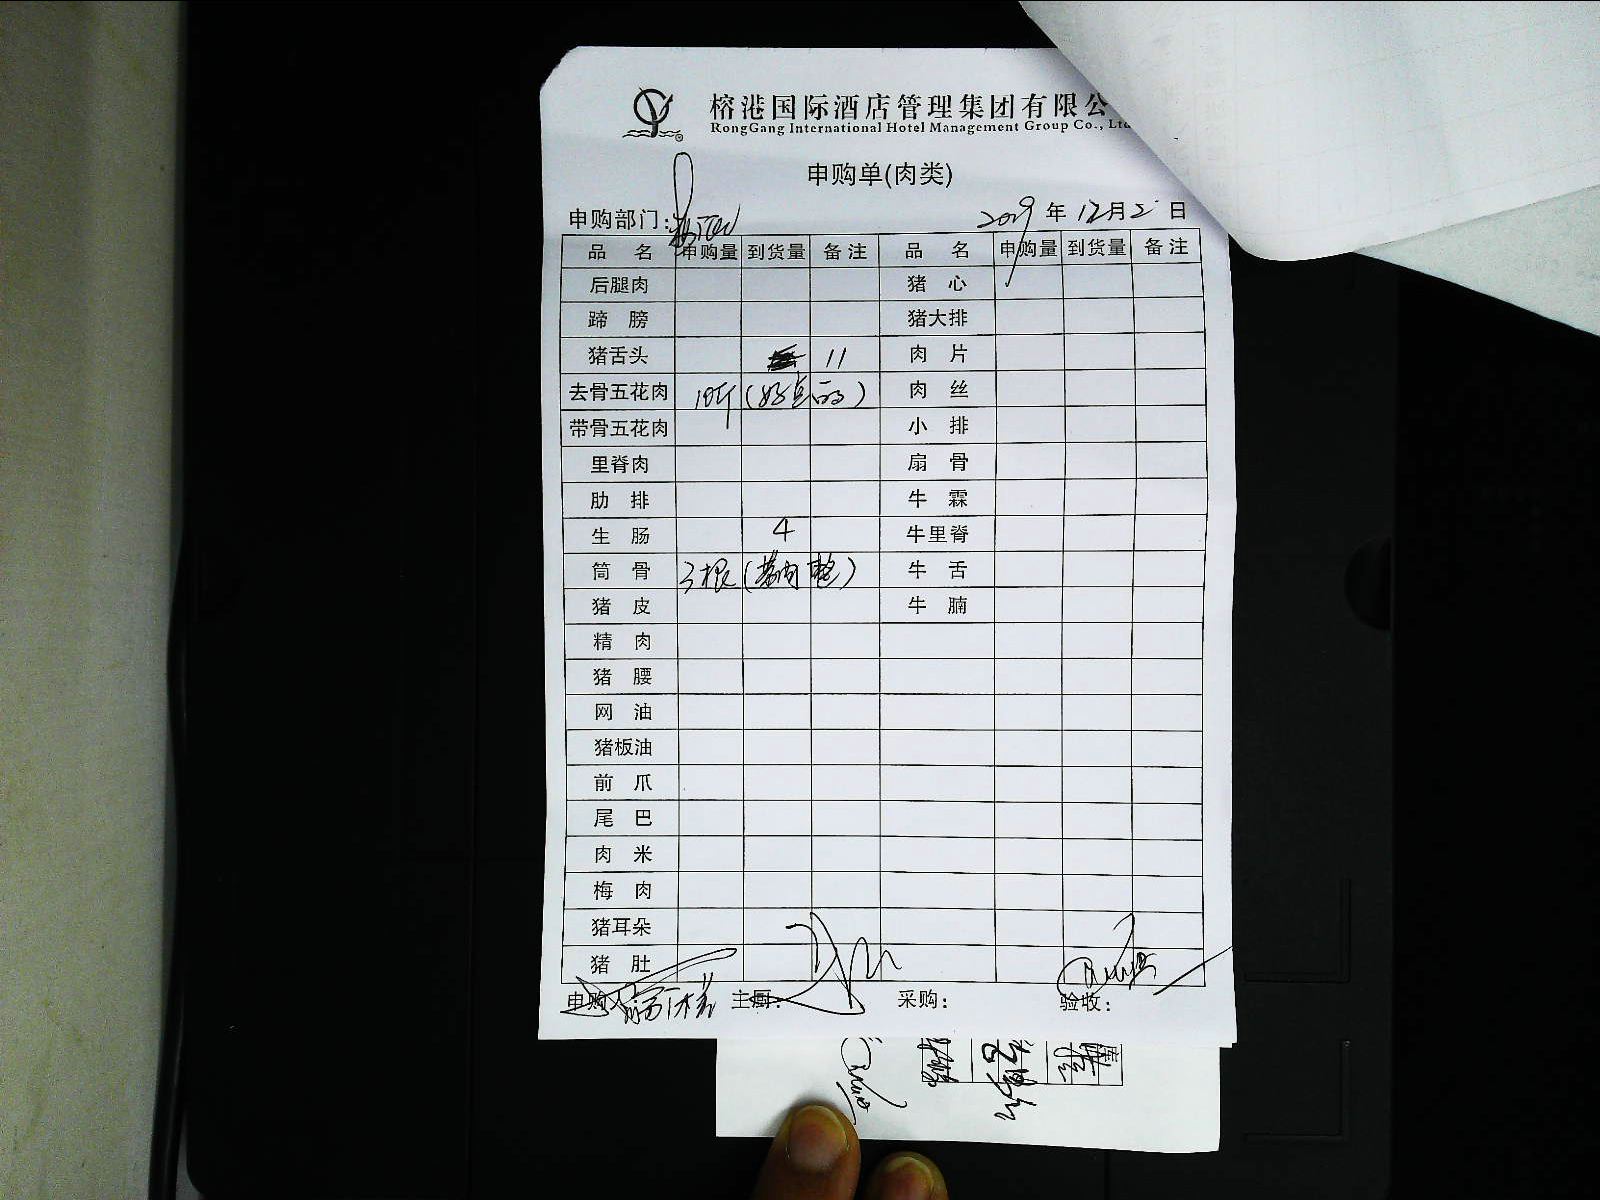 榕港国际酒店管理集团有限公
RongGang International Hotel Management Group Co., Ltd
申购单(肉类)
申购部门: 2019 年 12 月 2 日
品 名 申购量 到货量 备注 品 名 申购量 到货量 备注
后腿肉 猪 心
蹄 膀 猪大排
猪舌头 11 肉 片
去骨五花肉 10斤 (好点的) 肉 丝
带骨五花肉 小 排
里脊肉 扇 骨
肋 排 牛 霖
生 肠 4 牛里脊
筒 骨 3根 牛 舌
猪 皮 牛 腩
精 肉
猪 腰
网 油
猪板油
前 爪
尾 巴
肉 米
梅 肉
猪耳朵
猪 肚
申购人: 主厨: 采购: 验收: